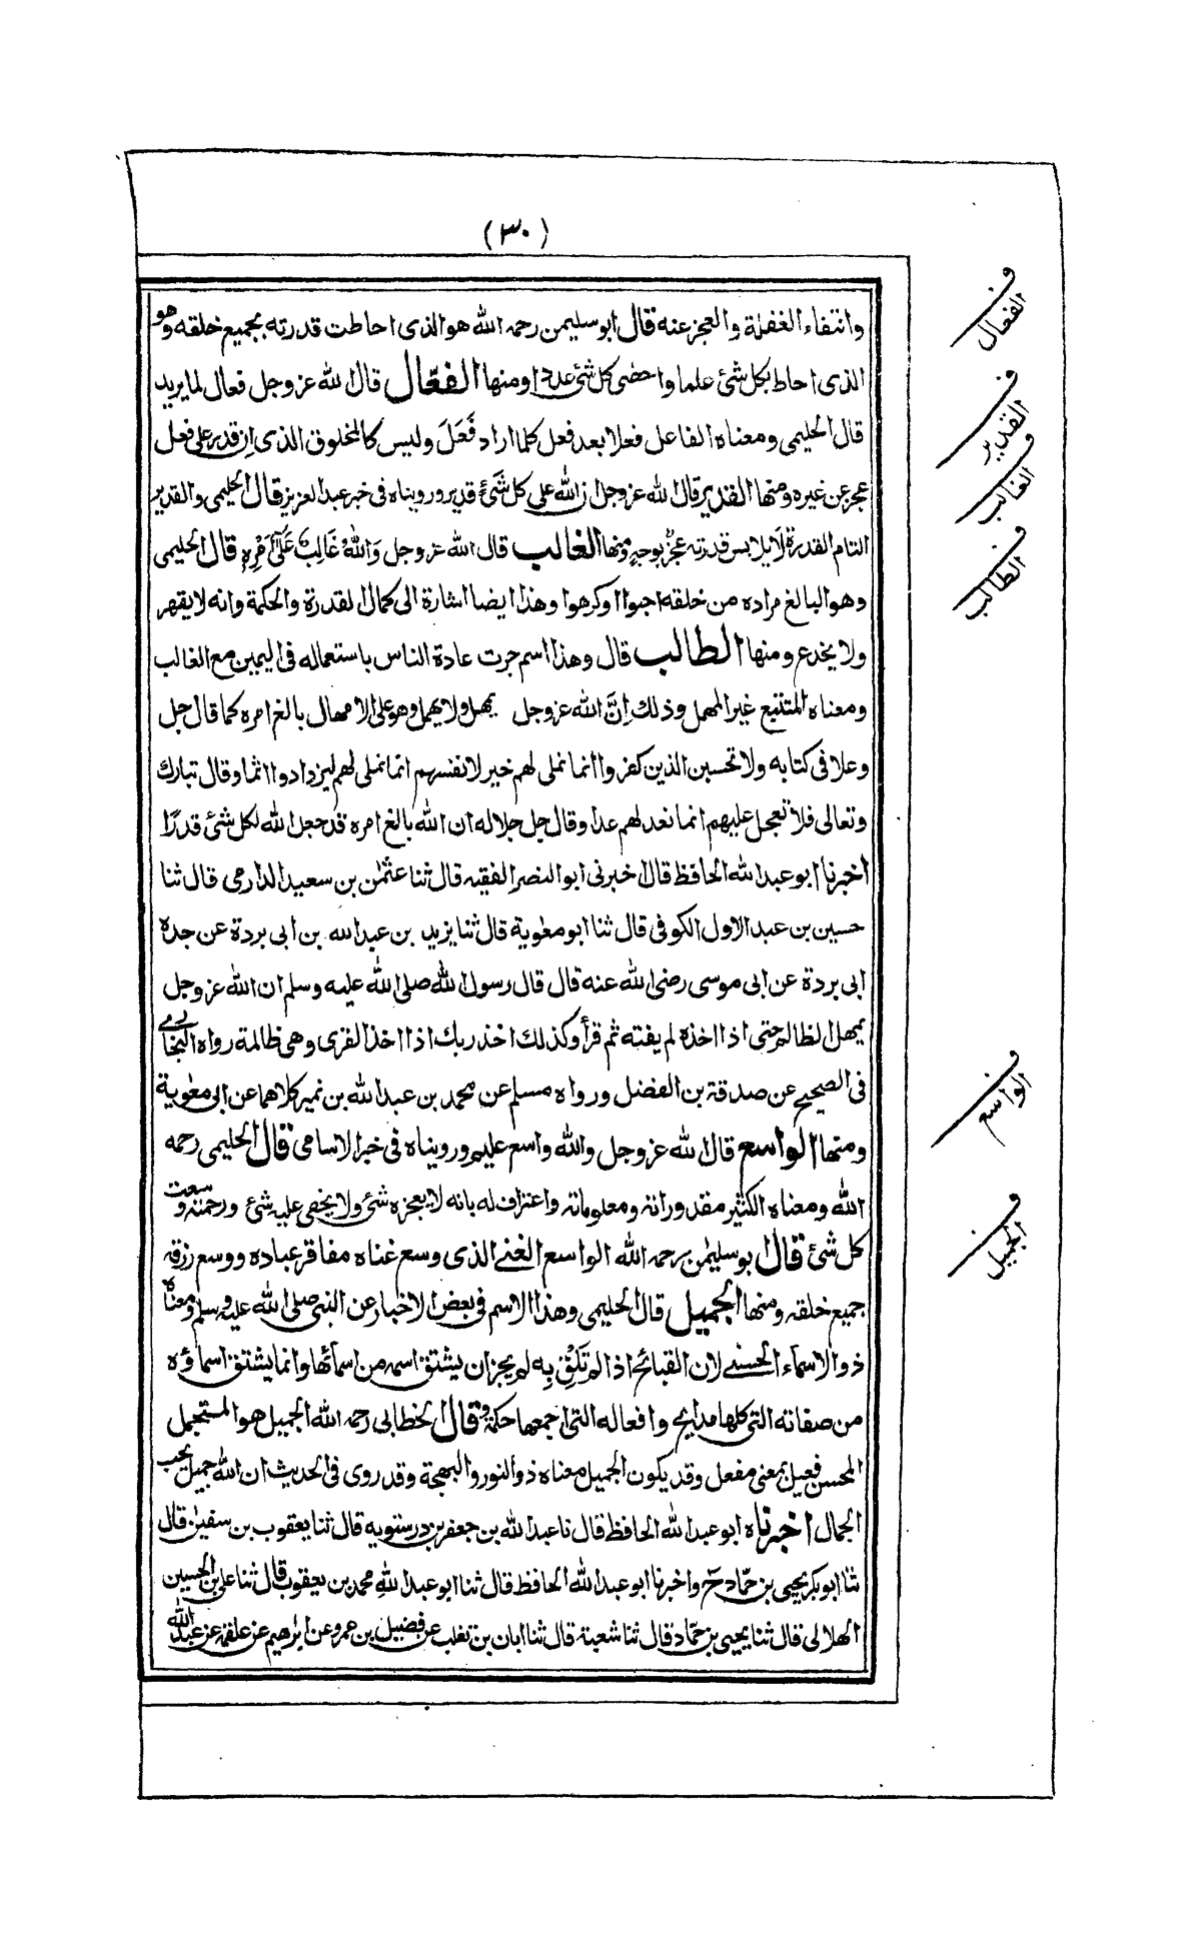 (٣٠)
وانتفاء الغفلة والعجز عنه قال ابو سليمن رحمه الله هو الذى احاطت قدرته بجميع خلقه وهو
الذى احاط بكل شئ علما واحصى كل شئ عددا ومنها الفعّال قال الله عز وجل فعال لما يريد
قال الحليمى ومعناه الفاعل فعلا بعد فعل كلما اراد فَعَلَ وليس كالمخلوق الذى ان قدر على فعل
عجز عن غيره ومنها القدير قال الله عز وجل ان الله على كل شَئ قدير وروينا‌ه فى خبر عبد العزيز قال الحليمى والقدير
التام القدرة لَا يلابس قدرته عجزٌ بوجهٍ ومنها الغالب قال الله عز وجل وَاللهُ غَالِبٌ عَلٰى اَمْرِهٖ قال الحليمى
وهو البالغ مراده من خلقه احبوا اوكرهوا وهذا ايضا اشارة الى كمال القدرة والحكمة وانه لا يقهر
ولا يخدع ومنها الطالب قال وهذا اسم جرت عادة الناس باستعماله فى اليمين مع الغالب
ومعناه المتتبع غير المهمل وذلك اِنَّ الله عز وجل يمهل ولا يهمل وهو على الامهال بالغ امره كما قال جل
وعلا فى كتابه ولا تحسبن الذين كفروا انما نملى لهم خير لانفسهم انما نملى لهم ليزدادوا اثما وقال تبارك
وتعالى فلا تعجل عليهم انما نعد لهم عدا وقال جل جلاله ان الله بالغ امره قد جعل الله لكل شئ قدرًا
اخبرنا ابو عبد الله الحافظ قال اخبرنى ابو النضر الفقيه قال ثنا عثمٰن بن سعيد الدارمى قال ثنا
حسين بن عبد الاول الكوفى قال ثنا ابو معٰوية قال ثنا يزيد بن عبد الله بن ابى بردة عن جده
ابى بردة عن ابى موسى رضى الله عنه قال قال رسول الله صلى الله عليه وسلم ان الله عز وجل
يمهل الظالم حتى اذا اخذه لم يفته ثم قرأ وكذلك اخذ ربك اذا اخذ القرى وهى ظالمة رواه البخارى
فى الصحيح عن صدقة بن الفضل ورواه مسلم عن محمد بن عبد الله بن نمير كلاهما عن ابى معٰوية
ومنها الواسع قال الله عز وجل والله واسع عليم وروينا‌ه فى خبر الاسامى قال الحليمى رحمه
الله ومعناه الكثير مقدوراته ومعلوماته واعتراف له بانه لا يعجزه شئ ولا يخفى عليه شئ ورحمته وسعت
كل شئ قال ابو سليمٰن رحمه الله الواسع الغنى الذى وسع غناه مفاقر عباده ووسع رزقه
جميع خلقه ومنها الجميل قال الحليمى وهذا الاسم فى بعض الاخبار عن النبى صلى الله عليه وسلم ومعناه
ذو الاسماء الحسنى لان القبائح اذا لم تَلِقْ بِه لم يجز ان يشتق اسمه من اسمائها وانما يشتق اسماؤه
من صفاته التى كلها مدايح وافعاله التى اجمعها حكمة وقال الخطابى رحمه الله الجميل هو المستجمل
المحسن فعيل بمعنى مفعل وقد يكون الجميل معناه ذو النور والبهجة وقد روى فى الحديث ان الله جميل يحب
الجمال اخبرناه ابو عبد الله الحافظ قال نا عبد الله بن جعفر بن درستويه قال ثنا يعقوب بن سفيٰن قال
ثنا ابو بكر يحيى بن حمّاد ح واخبرنا ابو عبد الله الحافظ قال ثنا ابو عبد اللهِ محمد بن يعقوب قال ثنا على بن الحسين
الهلالى قال ثنا يحيى بن حمّاد قال ثنا شعبة قال ثنا ابان بن تغلب عن فضيل بن عمرو عن ابراهيم عن علقمة عن عبد الله
ف الفعال
ف القدير
ف الغالب
ف الطالب
ف الواسع
ف الجميل